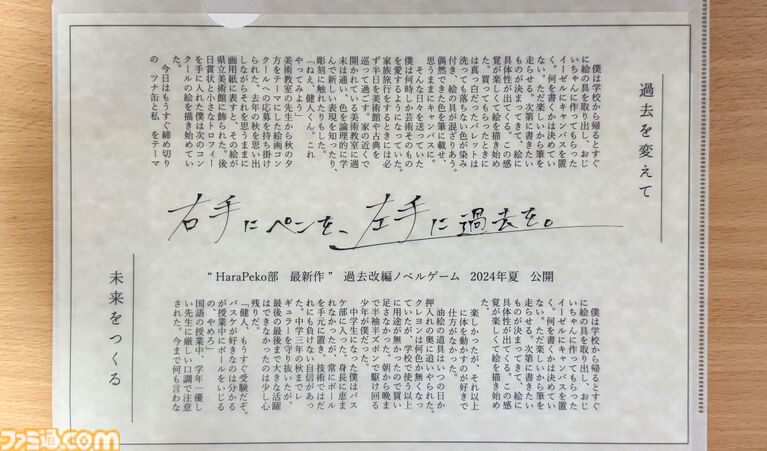 過去を変えて
僕は学校から帰るとすぐ
に絵の具を取り出し、おじ
いちゃんに作ってもらった
イーゼルにキャンバスを置
く。何を書くかは決めてい
ない。ただ楽しいから筆を
走らせる。次第に書きたい
ものが決まってきて、絵に
具体性が出てくる。この感
覚が楽しくて絵を描き始め
た。買ってもらったときに
は真っ白だったパレットは
洗っても落ちない色が染み
付き、絵の具が混ざりあう。
偶然できた色を筆に載せ、
思うままにキャンバスに。
そんな日々を送っていた
僕は何時しか芸術そのもの
を愛するようになっていた。
家族旅行をするときには必
ず半日を美術館や古典を
巡って過ごす。家の近くで
開かれている美術教室に週
末は通い、色を論理的に学
んで新しい表現を知ったり、
彫刻に触れたりもした。
「ねえ、健人くん。これ
やってみよう」
美術教室の先生から秋の夕
方をテーマにした絵画コン
クールへの応募を持ち掛け
られた。去年の秋を思い出
しながらそれを思うままに
画用紙に表すと、その絵が
県立美術館に飾られた。後
日賞状と小さなトロフィー
を手に入れた僕は次のコン
クールの絵を描き始めてい
た。
今日はもうすぐ締め切り
の「ツナ缶と私」をテーマ
右手にペンを、左手に過去を。
“HaraPeko部 最新作” 過去改編ノベルゲーム 2024年夏 公開
僕は学校から帰るとすぐ
に絵の具を取り出し、おじ
いちゃんに作ってもらった
イーゼルにキャンバスを置
く。何を書くかは決めてい
ない。ただ楽しいから筆を
走らせる。次第に書きたい
ものが決まってきて、絵に
具体性が出てくる。この感
覚が楽しくて絵を描き始め
た。
楽しかったが、それ以上
に体を動かすのが好きで
仕方がなかった。
油絵の道具はいつの日か
押入れの奥に追いやられた。
クレヨンは何色か無くなっ
ていたが、学校で使う以上
に用途が無かったので買い
足さなかった。朝から晩ま
で半袖半ズボンで駆け回る
少年が僕だった。
中学生になった僕はバス
ケ部に入った。身長に恵ま
れなかったが、常にボール
を手元に置き、技術ではだ
れにも負けない自信があっ
た。中学三年の秋までレ
ギュラーを守り抜いたが、
最後の最後まで大きな活躍
はできなかったのは少し心
残りだ。
「健人、もうすぐ受験だぞ。
バスケが好きなのは分かる
が授業中にボールをいじる
の、やめろ」
国語の授業中、学年一優し
い先生に厳しい口調で注意
された。今まで何も言わな
未来をつくる
ファミ通.com